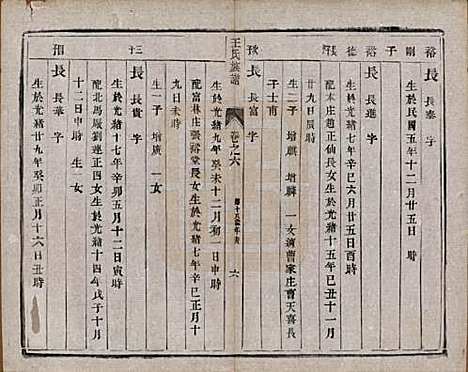 裕 長泰 字
剛 生於民國五年十二月廿五日
子
裕 長進 字
德 生於光緒十一年乙酉六月廿五日酉時
長 配本庄趙正仙長女生於光緒十五年己丑十一月
廿九日辰時
生二子 增麒 增麟 一女適曹家庄曹天喜長
子士甫
次 長富 字
生於光緒九年癸未十二月初一日申時
王氏族譜
卷之六
六
配富林庄張裕堂長女生於光緒七年辛巳正月十
九日未時
生一子 增廣 一女
三 長貴 字
生於光緒十七年辛卯五月十二日寅時
配北馬城劉連正四女生於光緒十四年戊子十月
十二日申時 生一女
四 長華 字
生於光緒廿九年癸卯正月十六日丑時